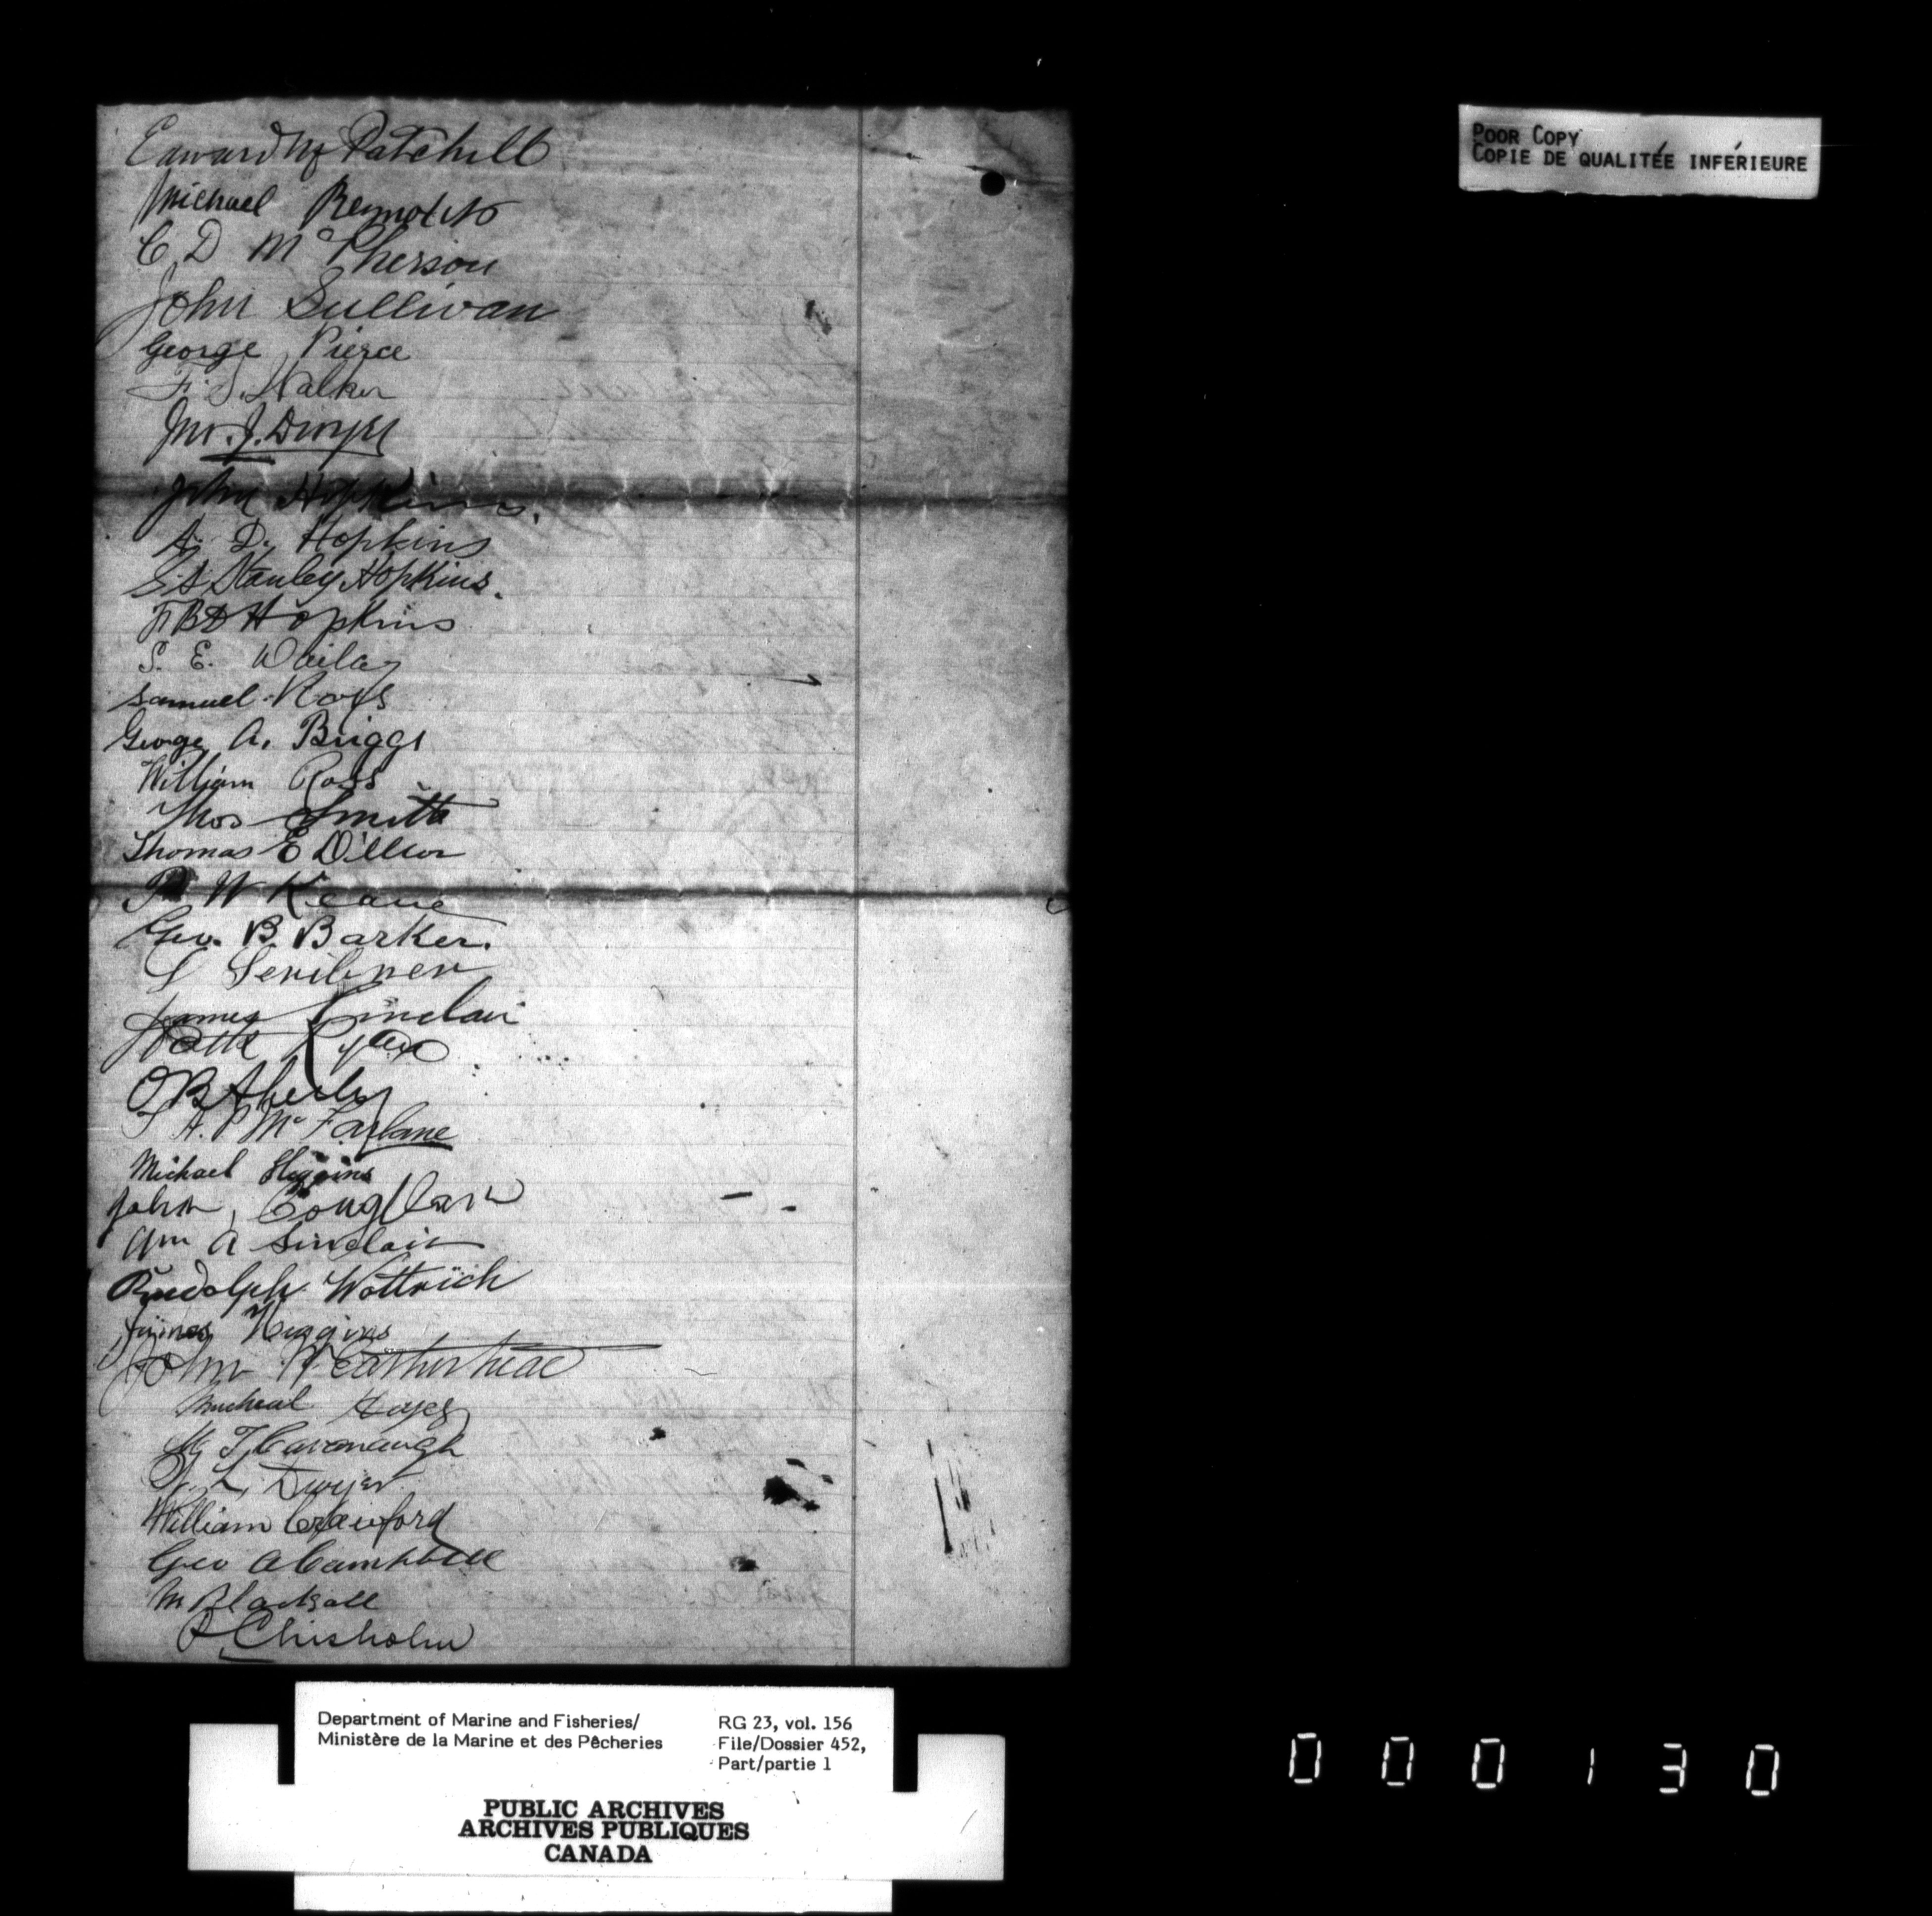 Edward McPatchell
Michael Reynolds
C D McPherson
John Sullivan
George Pierce
F. S. Walker
Jno. J. Dwyer
John Hopkins.
A. D. Hopkins
Stanley Hopkins.
F B D Hopkins
S. E. Dailey
Samuel Ross
George A. Briggs
William Ross
Thos Smith
Thomas E Dillon
W Keane
Geo. B. Barker.
S Scribner
James Sinclair
Patk Ryan
O B Akerley
A. P McFarlane
Michael Higgins
John Coughlan
Wm A Sinclair
Rudolph Wottrich
James Higgins
John Weatherhead
Micheal Hayes
M T Cavanaugh
L. Dwyer
William Crawford
Geo A Campbell
M Blacksall
Chisholm
POOR COPY
COPIE DE QUALITÉE INFÉRIEURE
Department of Marine and Fisheries/
Ministère de la Marine et des Pêcheries
RG 23, vol. 156
File/Dossier 452,
Part/partie 1
PUBLIC ARCHIVES
ARCHIVES PUBLIQUES
CANADA
000130